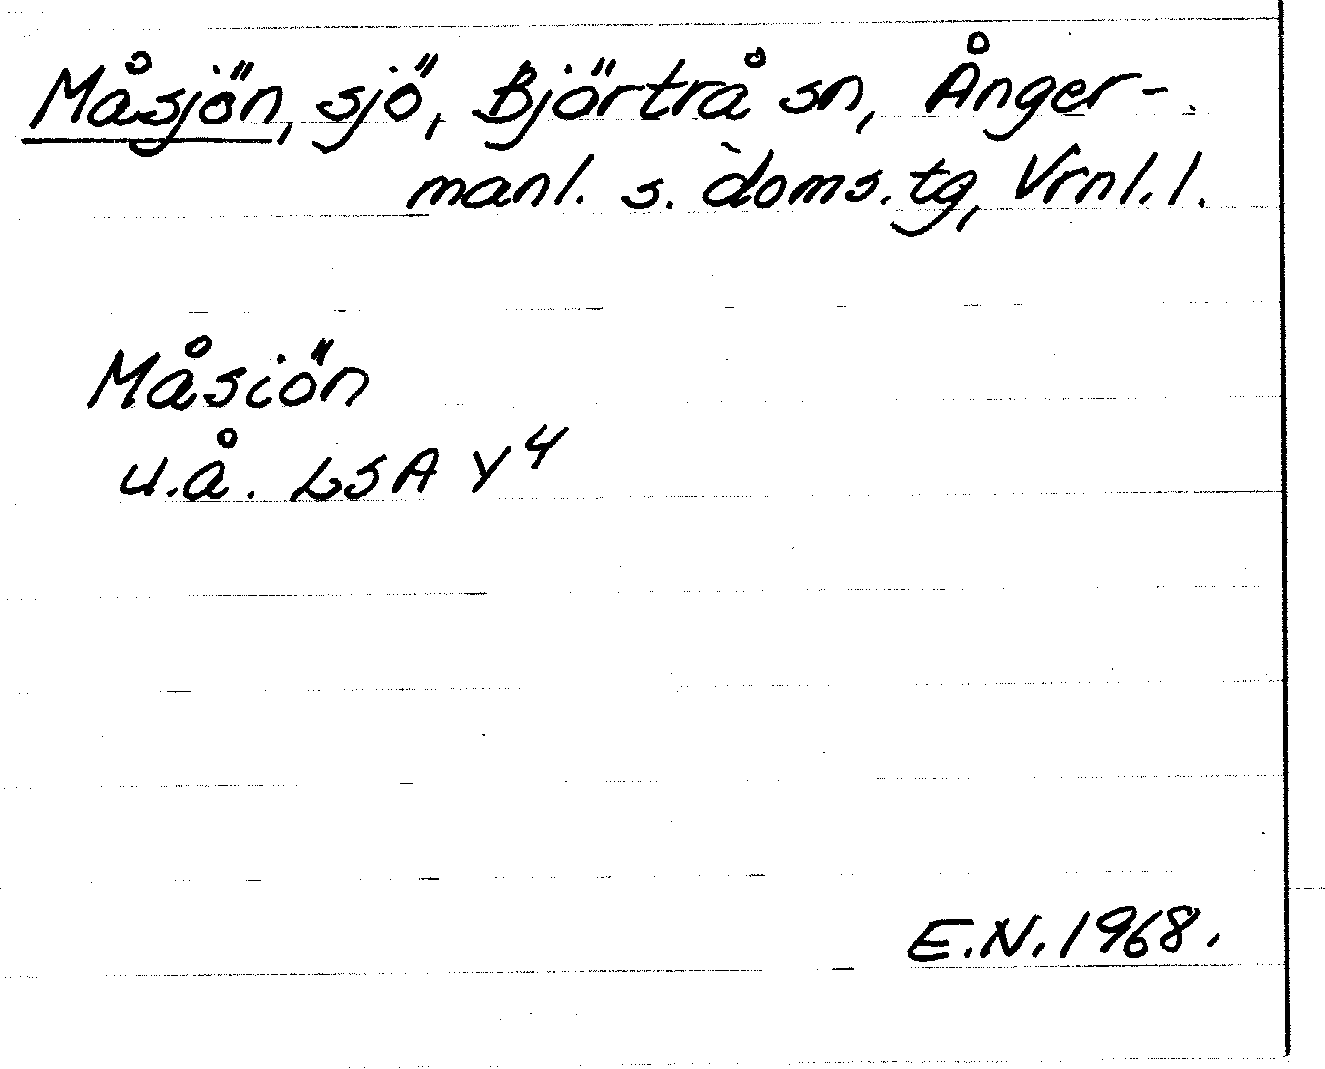 Måsjön, sjö, Björtrå sn, Ånger-
manl. s. doms. tg, Vrnl. l.
Måsiön
u.å. LSA Y4
E.N. 1968.